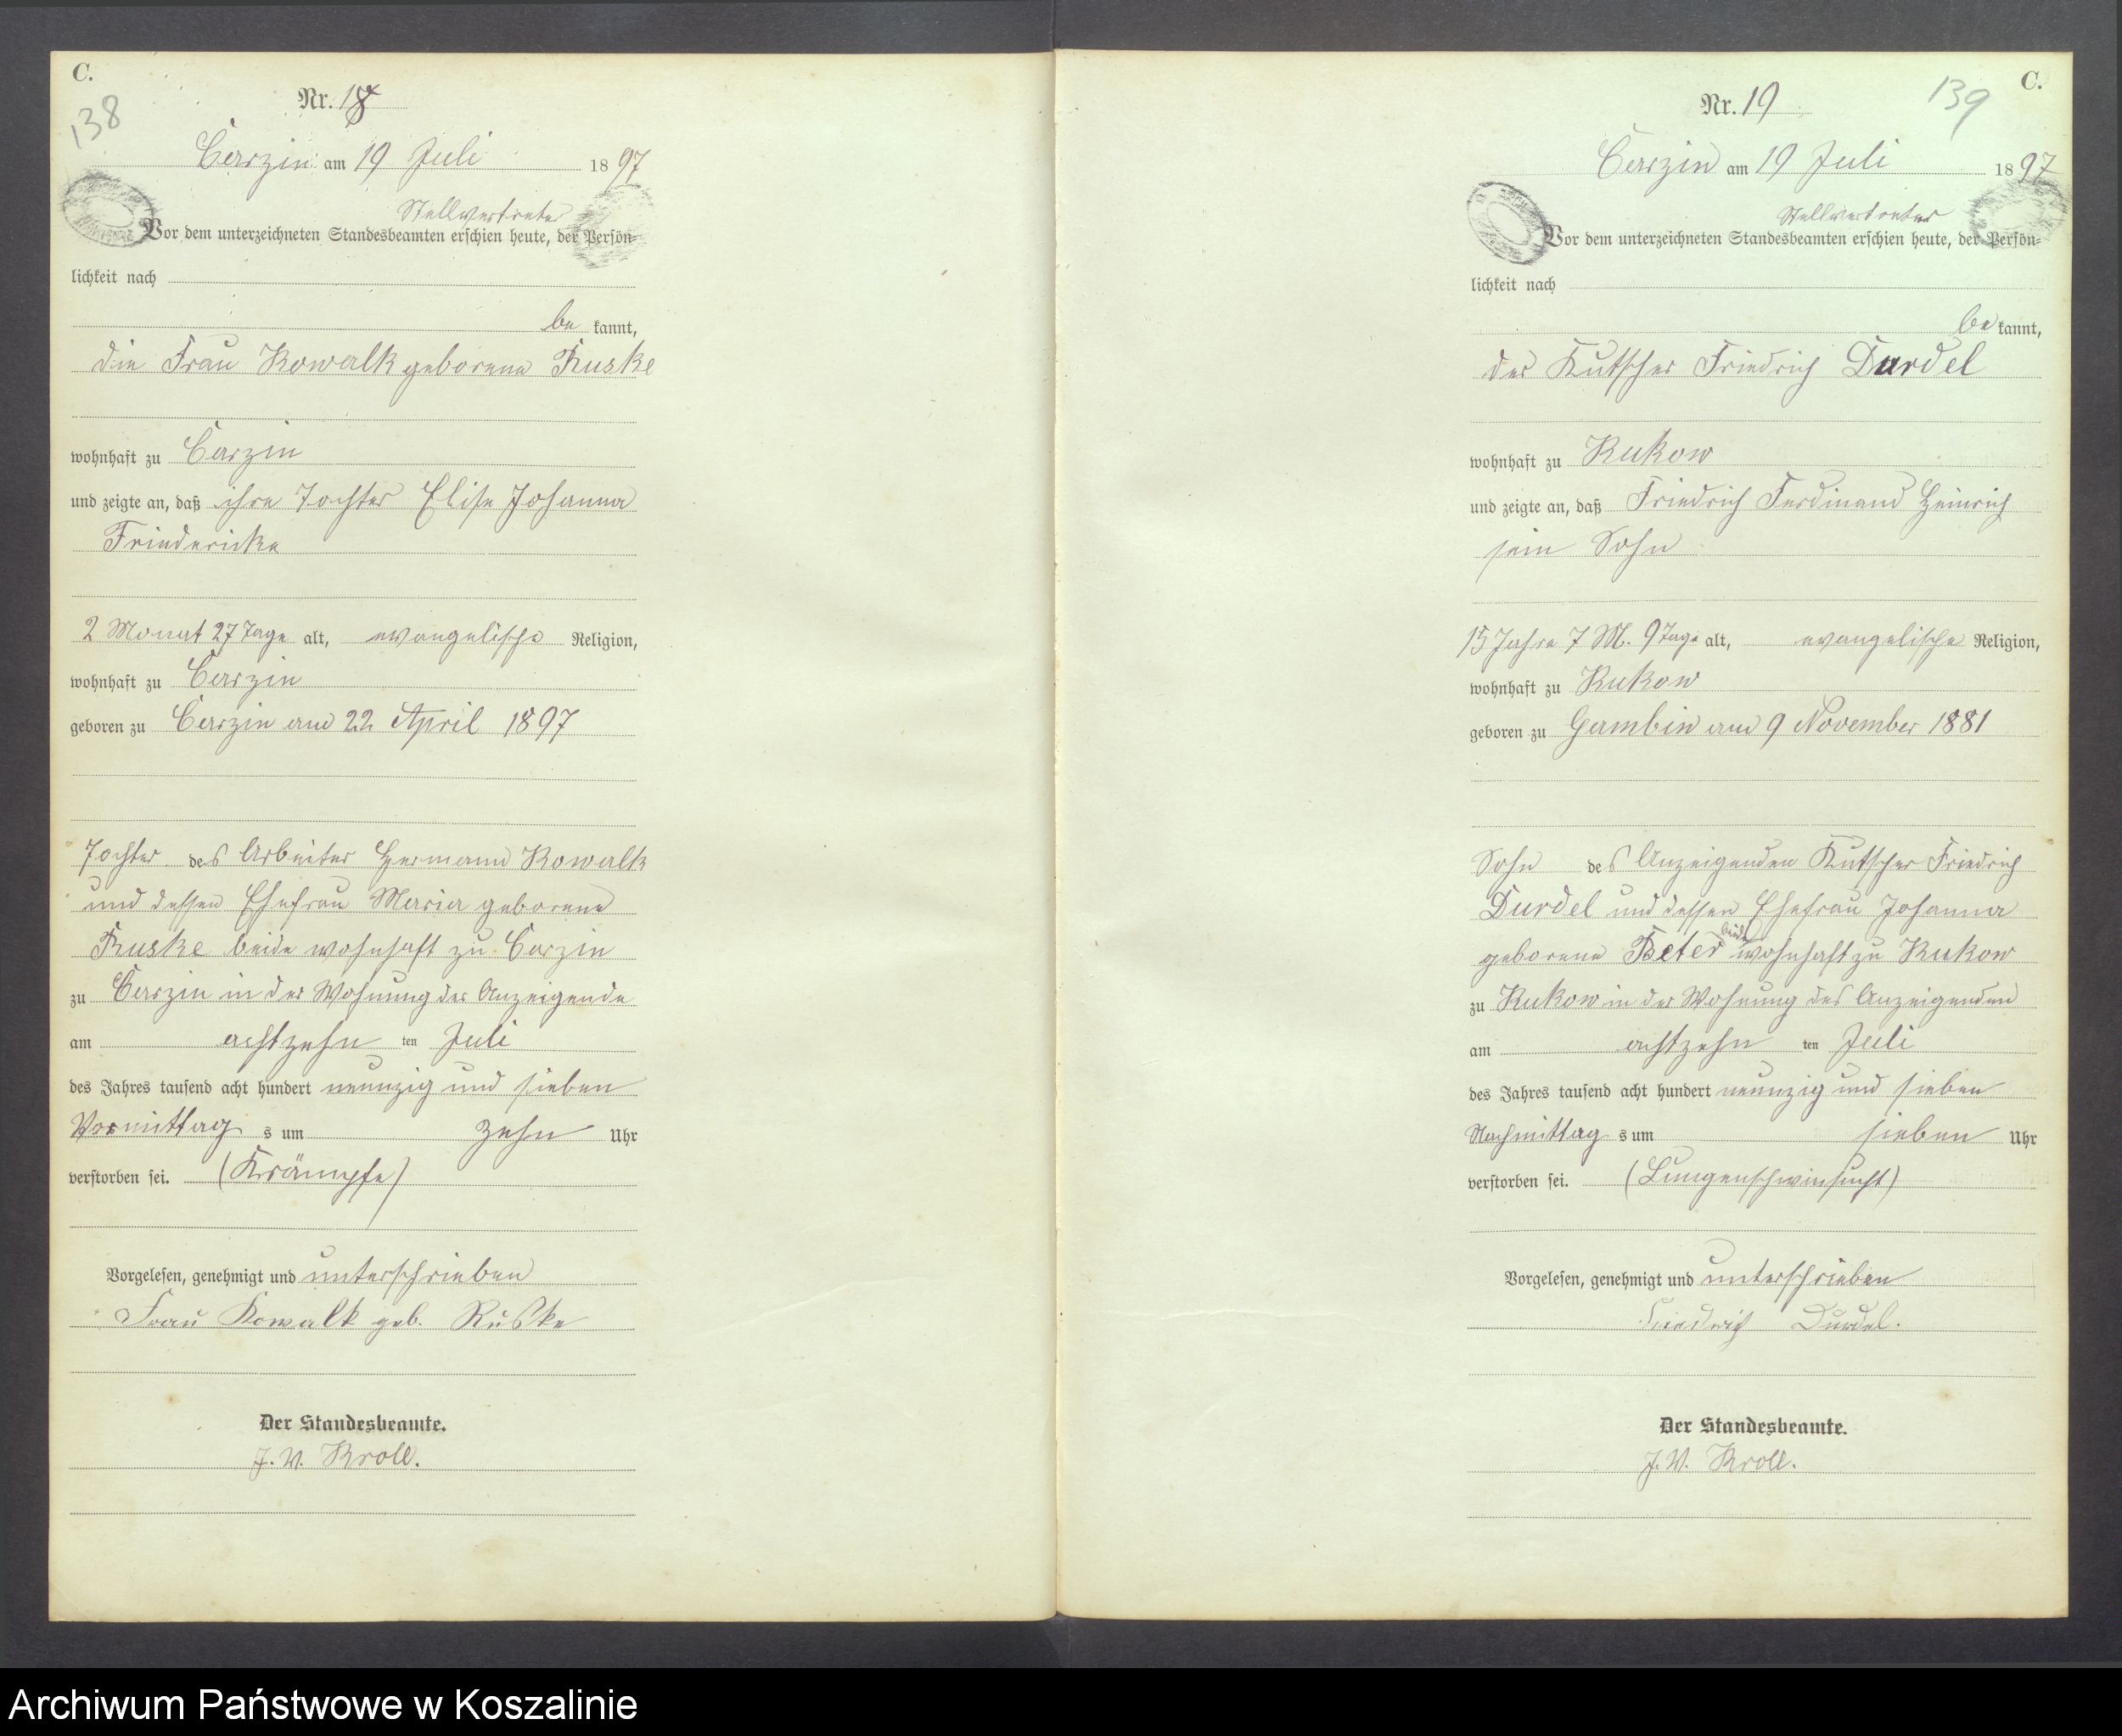 C.
138
Nr. 18
Carzin am 19 Juli 1897
Stellvertreter
Vor dem unterzeichneten Standesbeamten erschien heute, der Persön-
lichkeit nach
be kannt,
die Frau Kowalk geborene Ruske
wohnhaft zu Carzin
und zeigte an, daß ihre Tochter Elise Johanna
Friedericke
2 Monat 27 Tage alt, evangelische Religion,
wohnhaft zu Carzin
geboren zu Carzin am 22 April 1897
Tochter des Arbeiter Hermann Kowalk
und dessen Ehefrau Maria geborene
Ruske beide wohnhaft zu Carzin
zu Carzin in der Wohnung der Anzeigende
am achtzehn ten Juli
des Jahres tausend acht hundert neunzig und sieben
Vormittag s um zehn Uhr
verstorben sei. (Krämpfe)
Vorgelesen, genehmigt und unterschrieben
Frau Kowalk geb. Rußke
Der Standesbeamte.
J. V. Kroll.
C.
139
Nr. 19
Carzin am 19 Juli 1897
Stellvertreter
Vor dem unterzeichneten Standesbeamten erschien heute, der Persön-
lichkeit nach
be kannt,
der Kutscher Friedrich Durdel
wohnhaft zu Kukow
und zeigte an, daß Friedrich Ferdinand Heinrich
sein Sohn
15 Jahre 7 M. 9 Tage alt, evangelische Religion,
wohnhaft zu Kukow
geboren zu Gambin am 9 November 1881
Sohn des Anzeigenden Kutscher Friedrich
Durdel und dessen Ehefrau Johanna
beide
geborene wohnhaft zu Kukow
zu Kukow in der Wohnung des Anzeigenden
am achtzehn ten Juli
des Jahres tausend acht hundert neunzig und sieben
Nachmittag s um sieben Uhr
verstorben sei. (Lungenschwinsucht)
Vorgelesen, genehmigt und unterschrieben
Friedrich Durdel.
Der Standesbeamte.
J. V. Kroll.
Archiwum Państwowe w Koszalinie